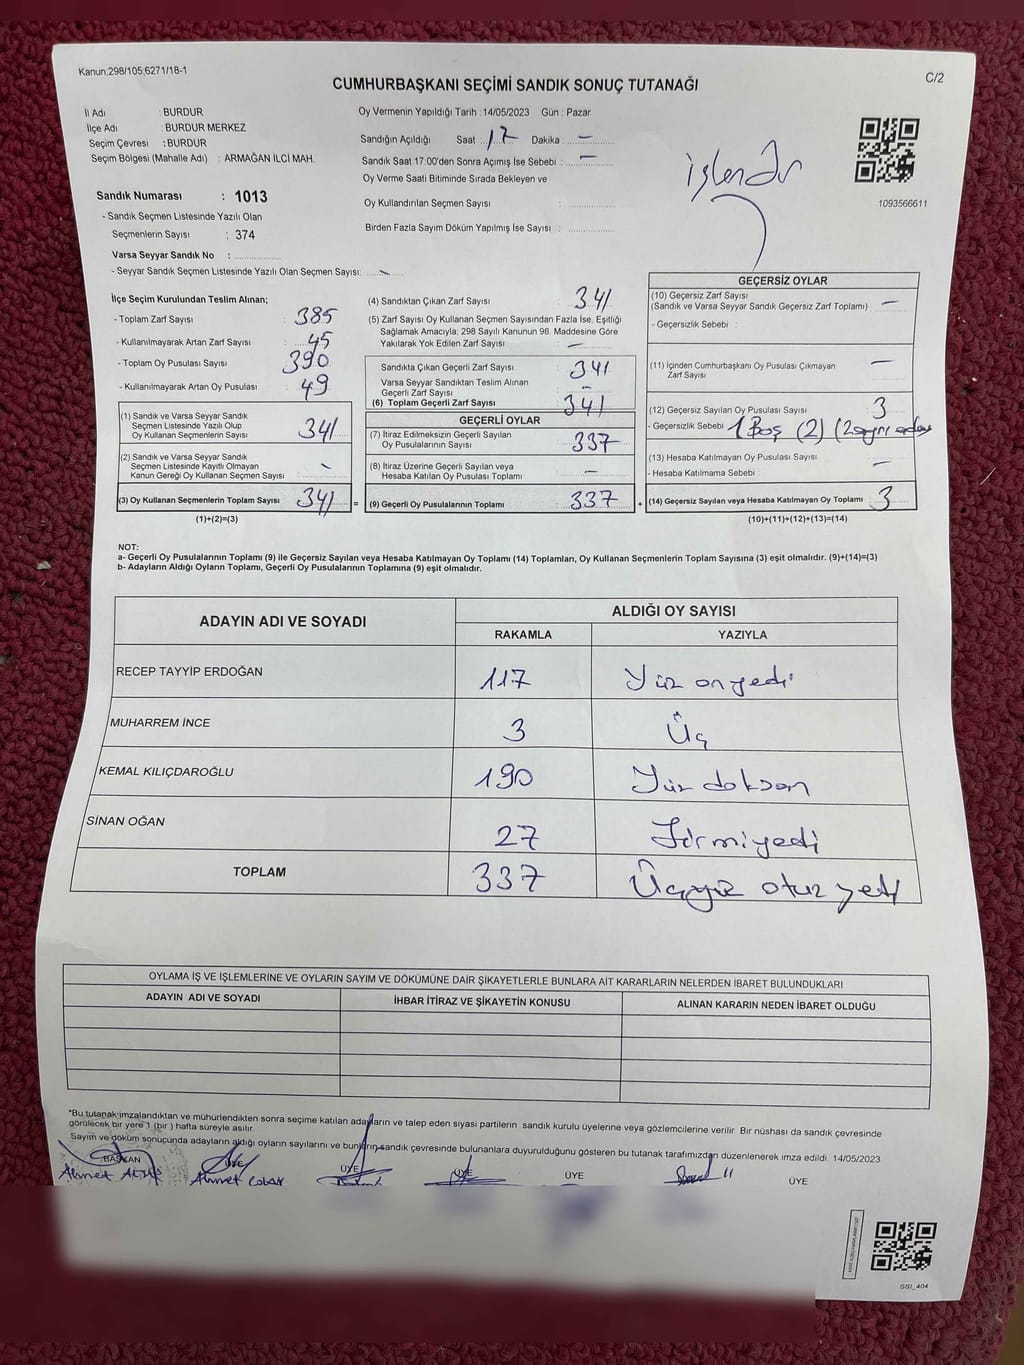 Kanun;298/105;6271/18-1
C/2
CUMHURBAŞKANI SEÇİMİ SANDIK SONUÇ TUTANAĞI
İl Adı : BURDUR
İlçe Adı : BURDUR MERKEZ
Seçim Çevresi : BURDUR
Seçim Bölgesi (Mahalle Adı) : ARMAĞAN İLCİ MAH.
Sandık Numarası : 1013
- Sandık Seçmen Listesinde Yazılı Olan
Seçmenlerin Sayısı : 374
Varsa Seyyar Sandık No :
- Seyyar Sandık Seçmen Listesinde Yazılı Olan Seçmen Sayısı: -
Oy Vermenin Yapıldığı Tarih : 14/05/2023 Gün : Pazar
Sandığın Açıldığı Saat : 17 Dakika : -
Sandık Saat 17:00'den Sonra Açımış İse Sebebi : -
Oy Verme Saati Bitiminde Sırada Bekleyen ve
Oy Kullandırılan Seçmen Sayısı :
Birden Fazla Sayım Döküm Yapılmış İse Sayısı :
işlendi
1093566611
İlçe Seçim Kurulundan Teslim Alınan;
- Toplam Zarf Sayısı : 385
- Kullanılmayarak Artan Zarf Sayısı : 45
- Toplam Oy Pusulası Sayısı : 390
- Kullanılmayarak Artan Oy Pusulası : 49
(1) Sandık ve Varsa Seyyar Sandık
Seçmen Listesinde Yazılı Olup
Oy Kullanan Seçmenlerin Sayısı : 341
(2) Sandık ve Varsa Seyyar Sandık
Seçmen Listesinde Kayıtlı Olmayan
Kanun Gereği Oy Kullanan Seçmen Sayısı : -
(3) Oy Kullanan Seçmenlerin Toplam Sayısı : 341 =
(1)+(2)=(3)
(4) Sandıktan Çıkan Zarf Sayısı : 341
(5) Zarf Sayısı Oy Kullanan Seçmen Sayısından Fazla İse, Eşitliği
Sağlamak Amacıyla; 298 Sayılı Kanunun 98. Maddesine Göre
Yakılarak Yok Edilen Zarf Sayısı : -
Sandıkta Çıkan Geçerli Zarf Sayısı : 341
Varsa Seyyar Sandıktan Teslim Alınan
Geçerli Zarf Sayısı : -
(6) Toplam Geçerli Zarf Sayısı : 341
GEÇERLİ OYLAR
(7) İtiraz Edilmeksizin Geçerli Sayılan
Oy Pusulalarının Sayısı : 337
(8) İtiraz Üzerine Geçerli Sayılan veya
Hesaba Katılan Oy Pusulası Toplamı : -
(9) Geçerli Oy Pusulalarının Toplamı : 337 +
GEÇERSİZ OYLAR
(10) Geçersiz Zarf Sayısı
(Sandık ve Varsa Seyyar Sandık Geçersiz Zarf Toplamı) : -
- Geçersizlik Sebebi :
(11) İçinden Cumhurbaşkanı Oy Pusulası Çıkmayan
Zarf Sayısı : -
(12) Geçersiz Sayılan Oy Pusulası Sayısı : 3
- Geçersizlik Sebebi : 1 Boş (2)
(13) Hesaba Katılmayan Oy Pusulası Sayısı : -
- Hesaba Katılmama Sebebi :
(14) Geçersiz Sayılan veya Hesaba Katılmayan Oy Toplamı : 3
(10)+(11)+(12)+(13)=(14)
NOT:
a- Geçerli Oy Pusulalarının Toplamı (9) ile Geçersiz Sayılan veya Hesaba Katılmayan Oy Toplamı (14) Toplamları, Oy Kullanan Seçmenlerin Toplam Sayısına (3) eşit olmalıdır. (9)+(14)=(3)
b- Adayların Aldığı Oyların Toplamı, Geçerli Oy Pusulalarının Toplamına (9) eşit olmalıdır.
ADAYIN ADI VE SOYADI ALDIĞI OY SAYISI
RAKAMLA YAZIYLA
RECEP TAYYİP ERDOĞAN 117 Yüz onyedi
MUHARREM İNCE 3 Üç
KEMAL KILIÇDAROĞLU 190 Yüz doksan
SİNAN OĞAN 27 Yirmiyedi
TOPLAM 337 Üçyüz otuz yedi
OYLAMA İŞ VE İŞLEMLERİNE VE OYLARIN SAYIM VE DÖKÜMÜNE DAİR ŞİKAYETLERLE BUNLARA AİT KARARLARIN NELERDEN İBARET BULUNDUKLARI
ADAYIN ADI VE SOYADI İHBAR İTİRAZ VE ŞİKAYETİN KONUSU ALINAN KARARIN NEDEN İBARET OLDUĞU
*Bu tutanak imzalandıktan ve mühürlendikten sonra seçime katılan adayların ve talep eden siyasi partilerin sandık kurulu üyelerine veya gözlemcilerine verilir. Bir nüshası da sandık çevresinde
görülecek bir yere 1 (bir) hafta süreyle asılır.
Sayım ve döküm sonucunda adayların aldığı oyların sayılarını ve bunların sandık çevresinde bulunanlara duyurulduğunu gösteren bu tutanak tarafımızdan düzenlenerek imza edildi. 14/05/2023
BAŞKAN ÜYE ÜYE ÜYE ÜYE ÜYE
Ahmet Ahmet Çoban
SSİ_404